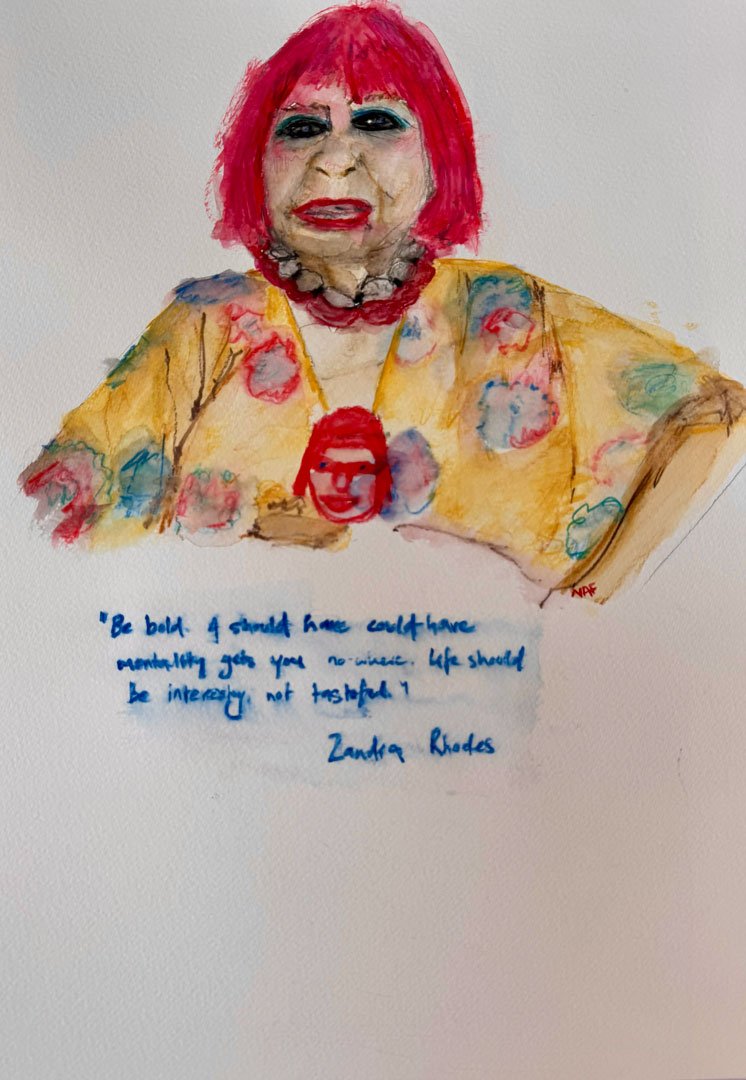 NAF
"Be bold. A should have could have
mentality gets you no-where. Life should
be interesting, not tasteful."
Zandra Rhodes